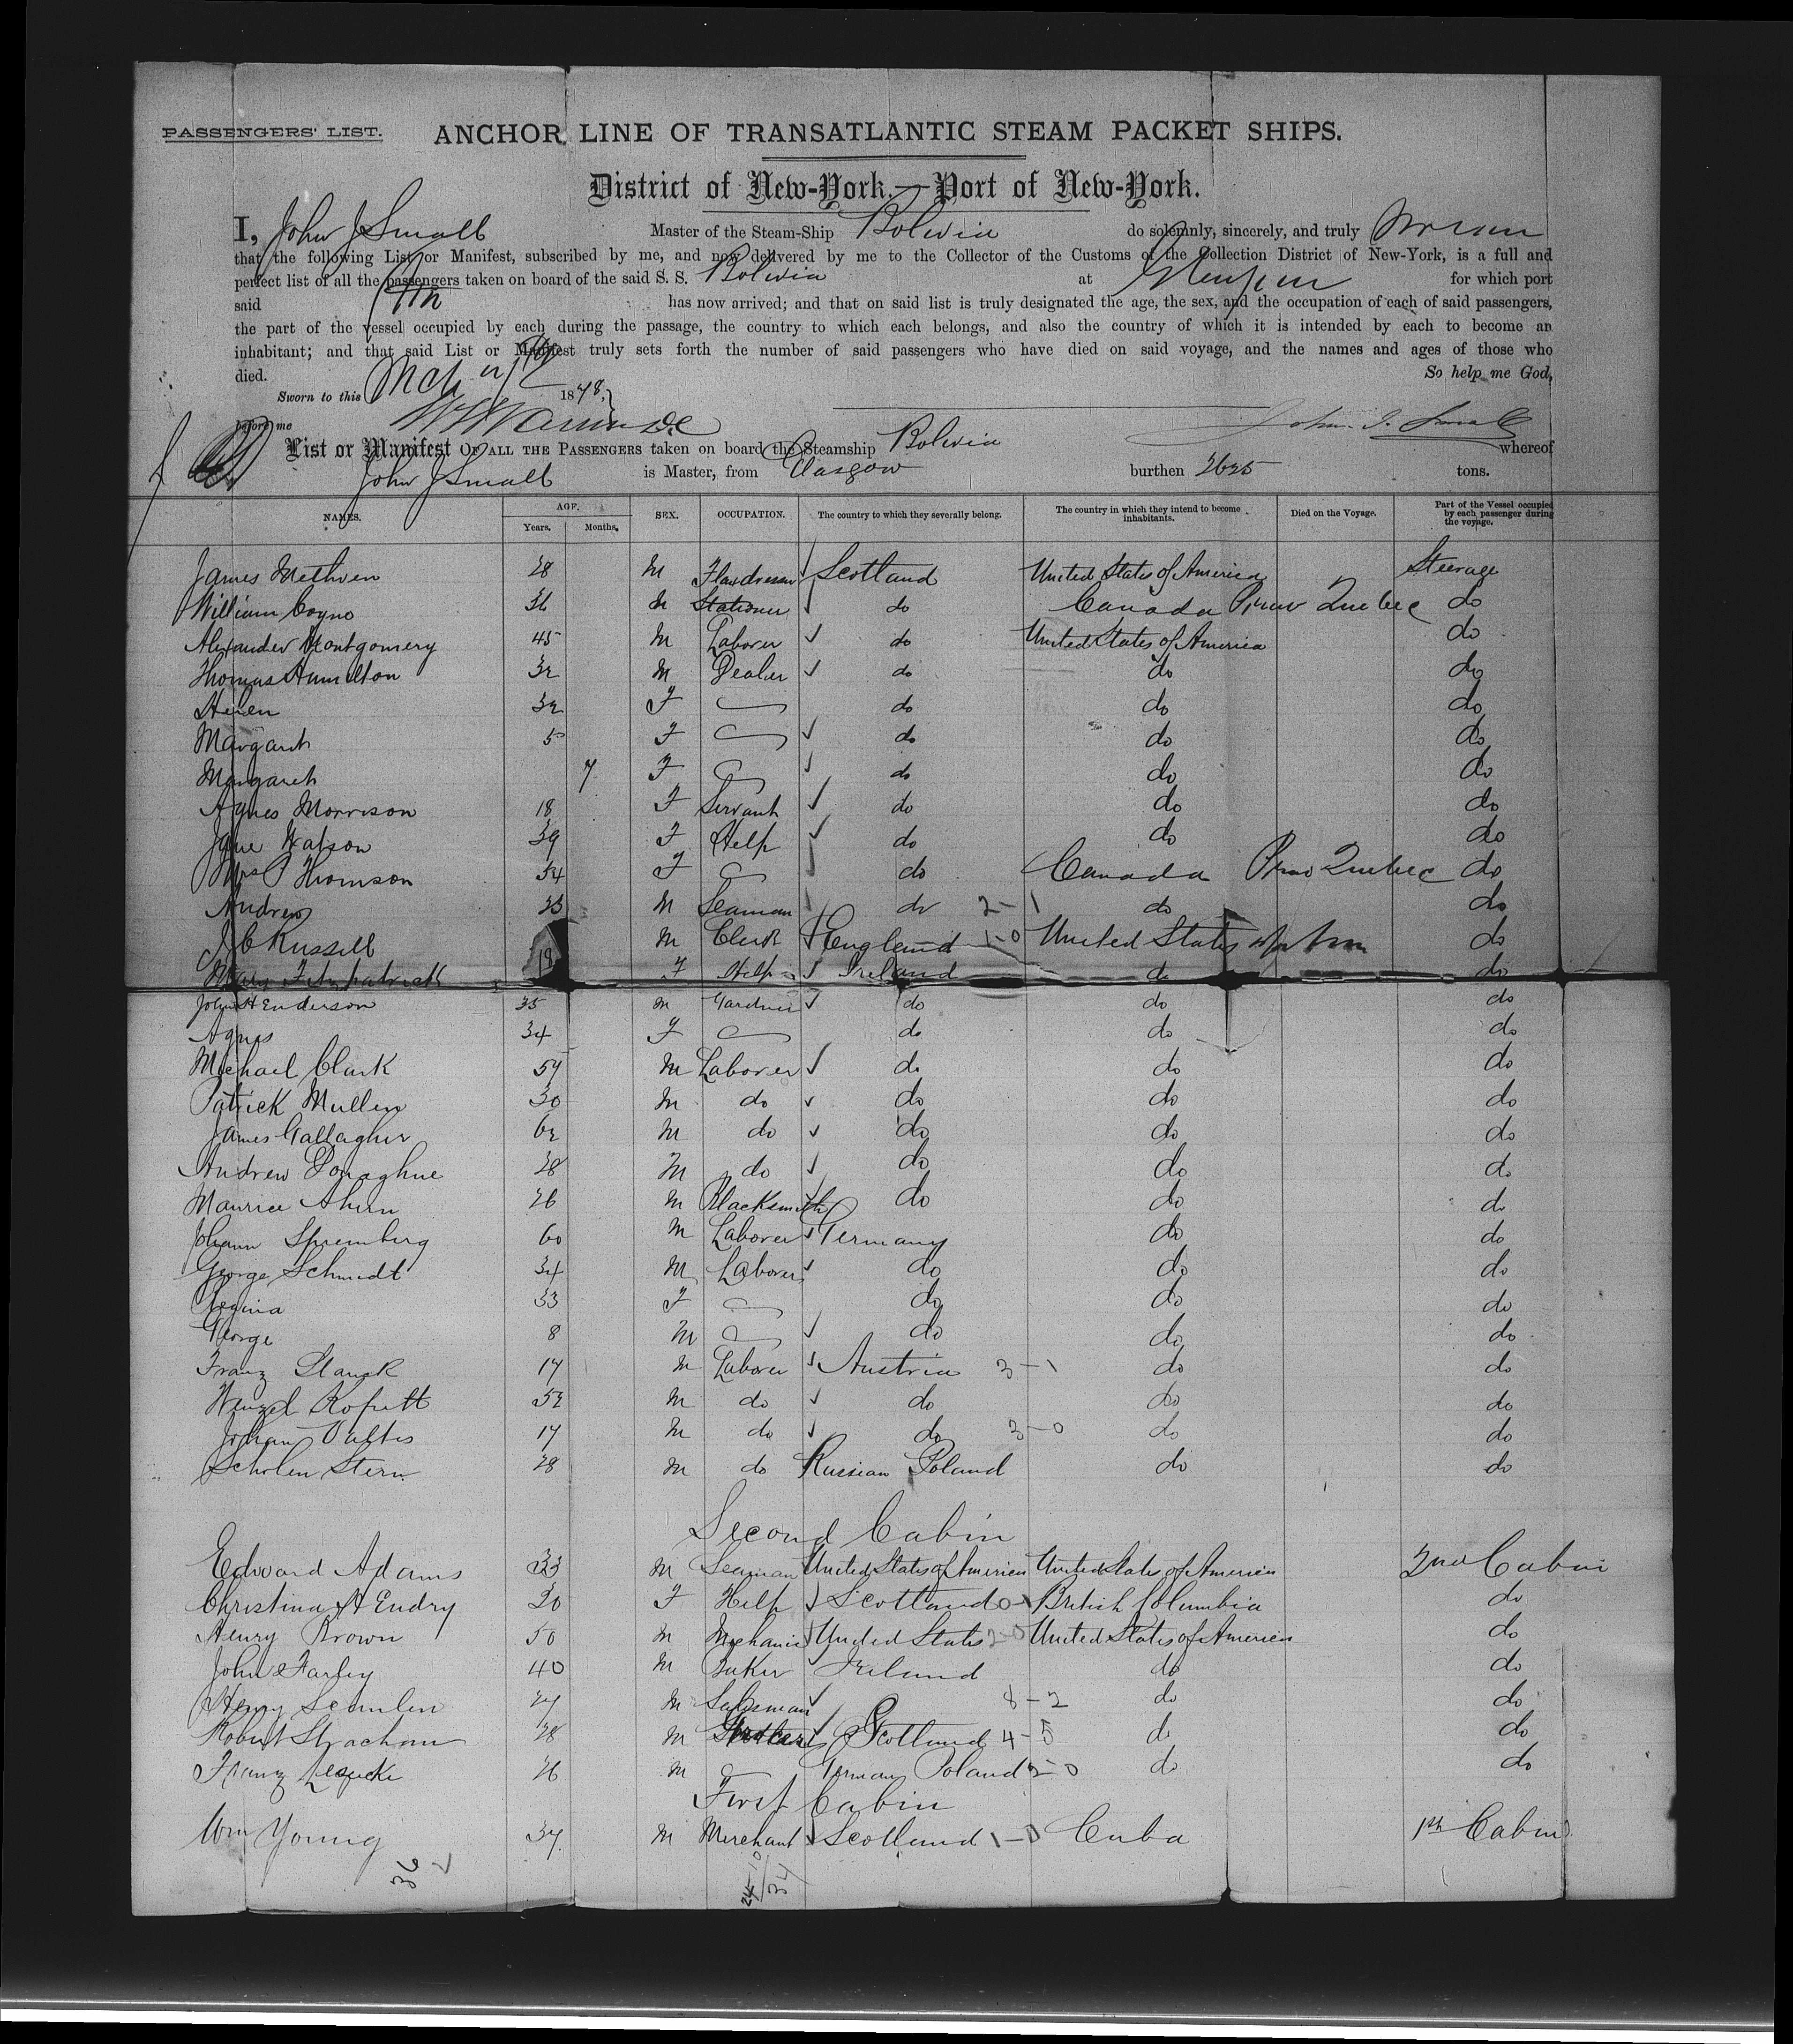 PASSENGERS' LIST. ANCHOR LINE OF TRANSATLANTIC STEAM PACKET SHIPS.
District of New-York.—Port of New-York.
I, John J Small Master of the Steam-Ship Bolivia do solemnly, sincerely, and truly
that the following List or Manifest, subscribed by me, and now delivered by me to the Collector of the Customs of the Collection District of New-York, is a full and
perfect list of all the passengers taken on board of the said S. S. Bolivia at for which port
said has now arrived; and that on said list is truly designated the age, the sex, and the occupation of each of said passengers,
the part of the vessel occupied by each during the passage, the country to which each belongs, and also the country of which it is intended by each to become an
inhabitant; and that said List or Manifest truly sets forth the number of said passengers who have died on said voyage, and the names and ages of those who
died. So help me God,
Sworn to this Mch 1878,
before me John J. Small
List or Manifest OF ALL THE PASSENGERS taken on board the Steamship Bolivia whereof
John J Small is Master, from Glasgow burthen 2625 tons.
NAMES. AGE. Years. Months. SEX. OCCUPATION. The country to which they severally belong. The country in which they intend to become inhabitants. Died on the Voyage. Part of the Vessel occupied by each passenger during the voyage.
James Methven 28 M Scotland United States of America Steerage
William Coyne M Stationer do Canada Prov Quebec do
Alexander Montgomery 45 M Laborer do United States of America do
Thomas Hamilton 32 M Dealer do do do
Helen 32 F do do do
Margaret 5 F do do do
Margaret 7 F do do do
Agnes Morrison 18 F Servant do do do
Jane Watson 39 F Help do do do
Mrs P Thomson 54 F do Canada Prov Quebec do
Andrew 23 M Seaman do 2-1 do do
J C Russell M Clerk England 1-0 United States do
Mary Fitzpatrick 19 F Help Ireland do do
John Henderson 35 M Gardner do do do
Agnes 34 F do do do
Michael Clark 57 M Laborer do do do
Patrick Mullen 30 M do do do do
James Gallagher 62 M do do do do
Andrew Donaghue 28 M do do do do
Maurice Ahern 26 M Blacksmith do do do
Johann Spremberg 60 M Laborer Germany do do
George Schmidt 34 M Laborer do do do
Regina 33 F do do do
George 8 M do do do
Franz Stanek 17 M Laborer Austria 3-1 do do
Wenzel 52 M do do do do
Johann 17 M do do 3-0 do do
Scholem Stern 28 M do Russian Poland do do
Second Cabin
Edward Adams 33 M Seaman United States of America United States of America 2nd Cabin
Christina 20 F Help Scotland British Columbia do
Henry Brown 50 M Mechanic United States 2-0 United States of America do
John Farley 40 M Baker Ireland do do
Henry 27 M Salesman 8-2 do do
Robert Strachan 28 M Scotland 4-5 do do
Franz 26 M German Poland do do
First Cabin
Wm Young 37 M Merchant Scotland 1-0 Cuba 1st Cabin
36